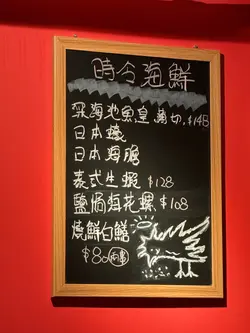 時令海鮮
深海池魚皇 薄切 $148
日本蠔
日本海膽
泰式生蝦 $128
鹽焗海花螺 $108
燒鮮白鱔
$80兩串